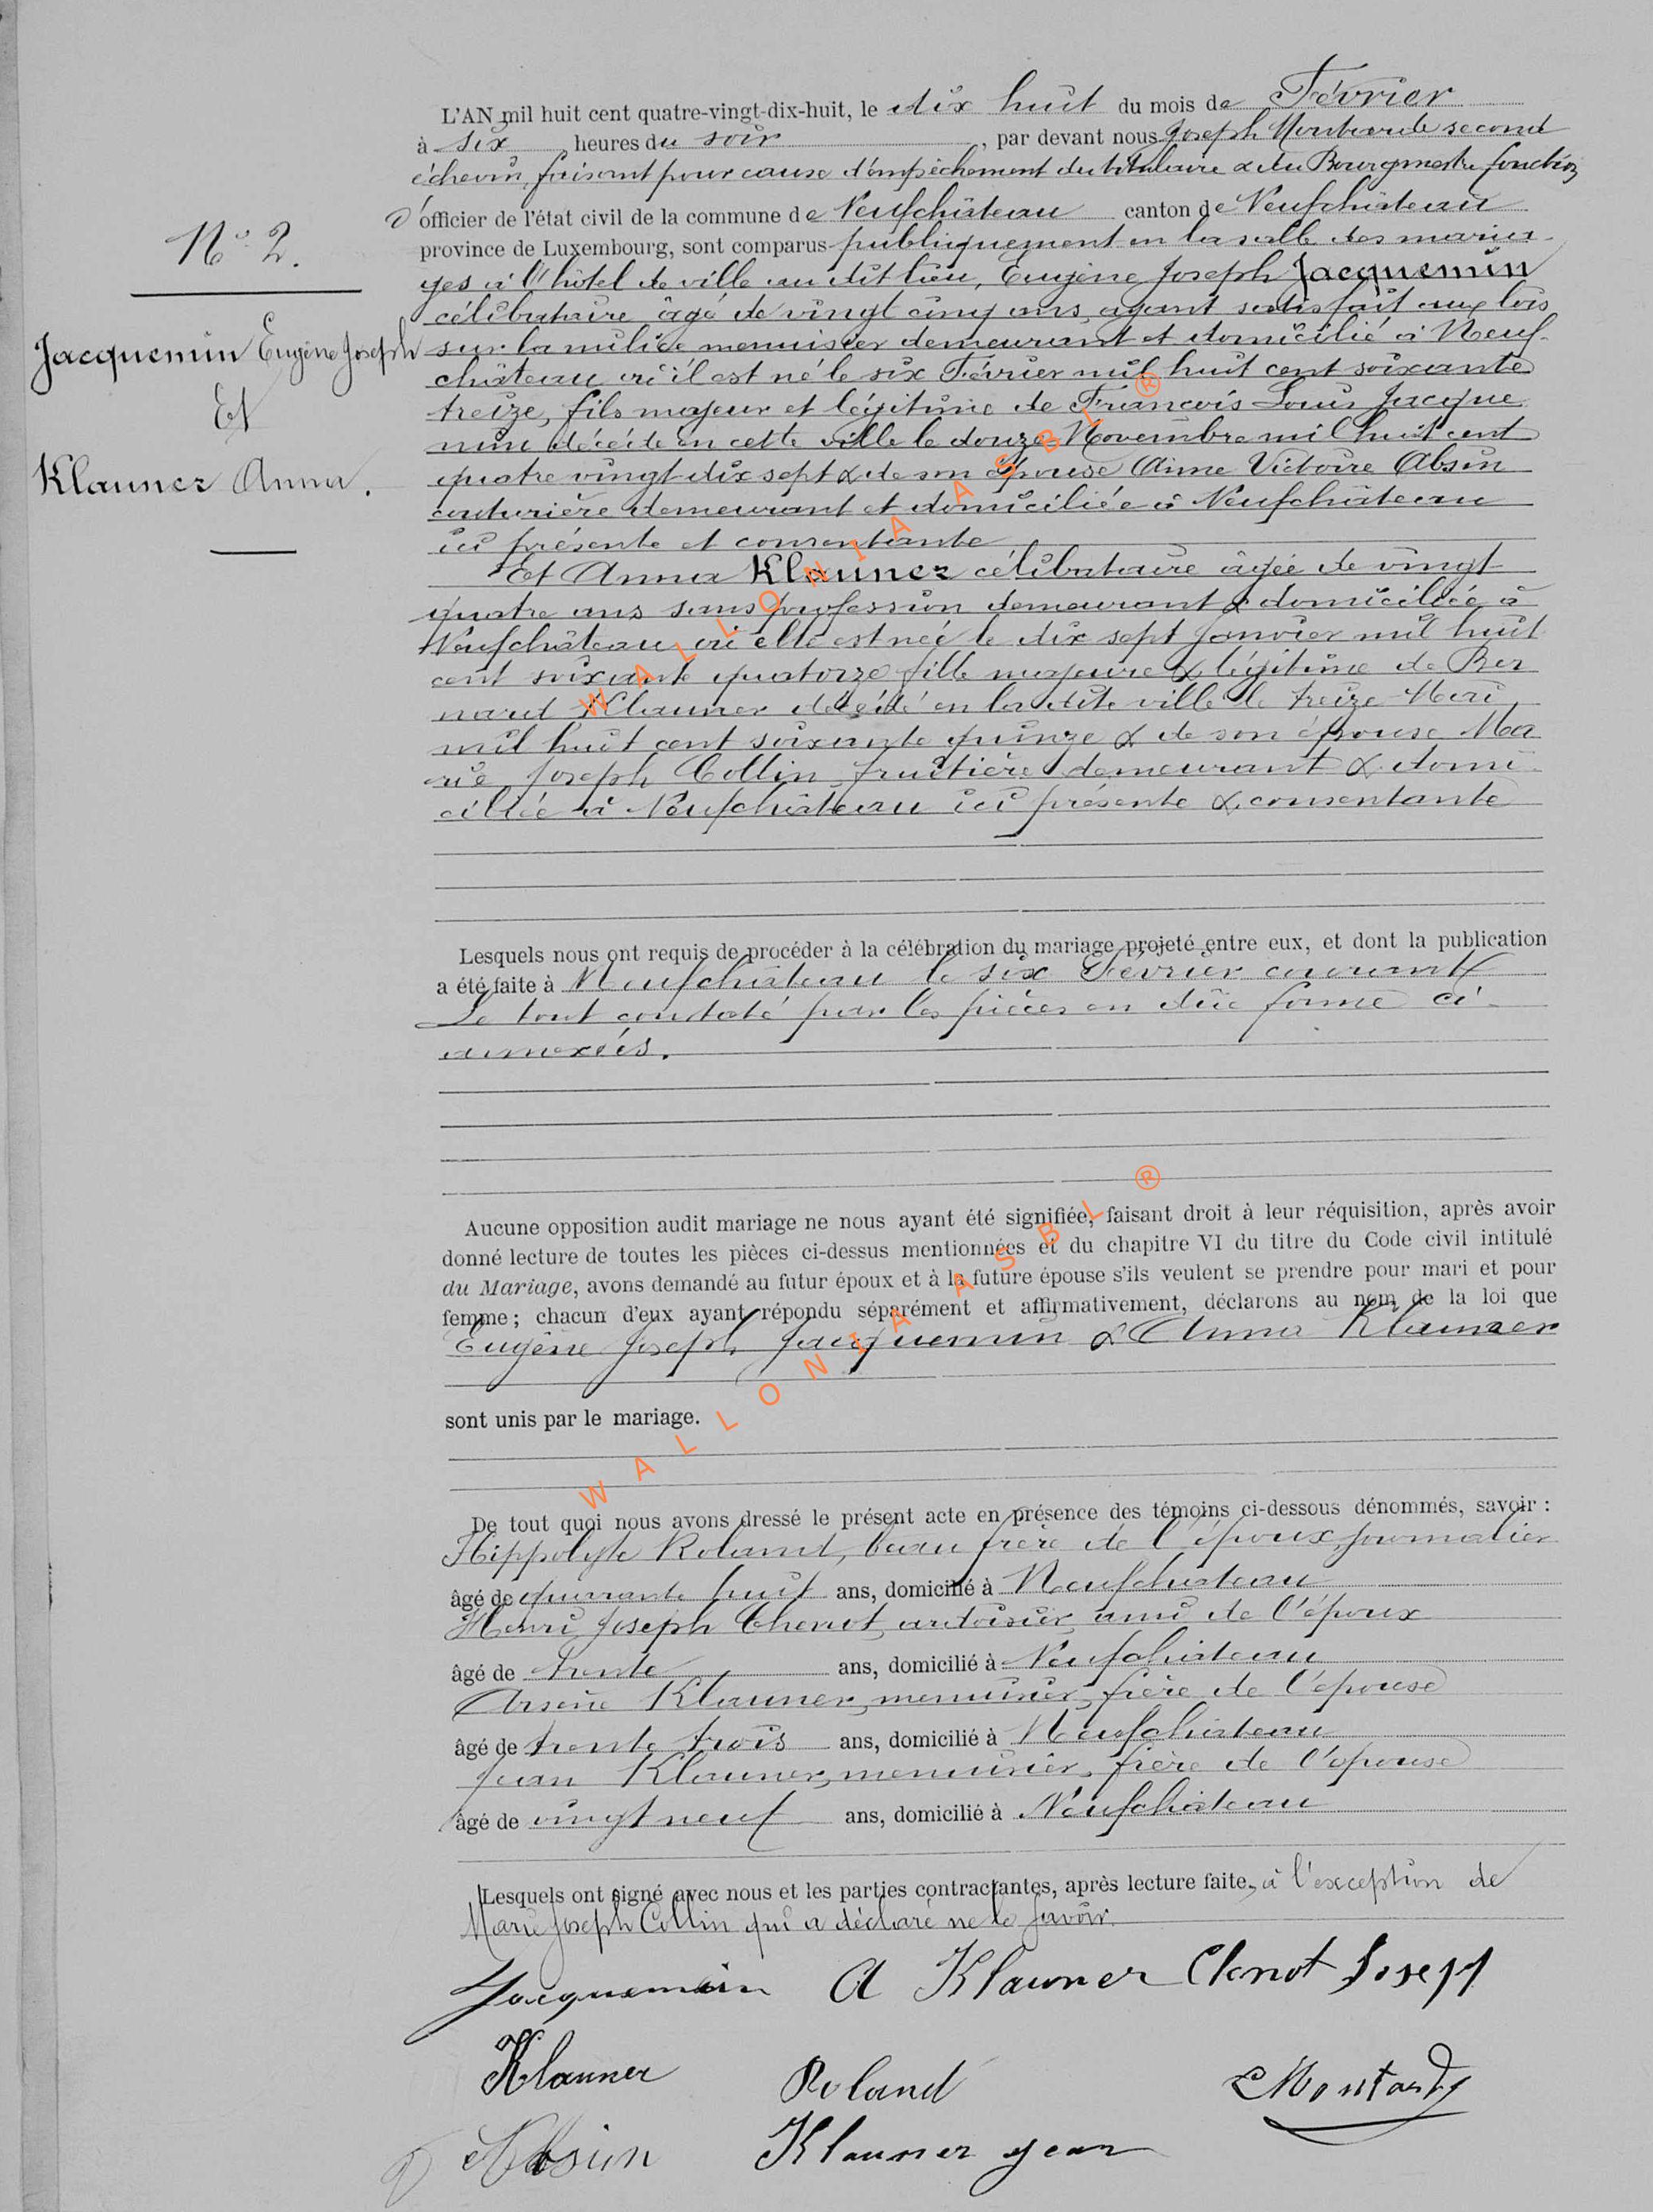 L'AN mil huit cent quatre-vingt-dix-huit, le dix huit du mois de Février
à six heures du soir, par devant nous Joseph second
échevin, faisant pour cause d'empêchement du titulaire & du Bourgmestre fonction
d'officier de l'état civil de la commune de Neufchâteau canton de Neufchâteau
N° 2.
province de Luxembourg, sont comparus publiquement en la salle des maria-
ges à l'hôtel de ville au dit lieu, Eugène Joseph Jacquemin
célibataire âgé de vingt cinq ans, ayant satisfait aux lois
Jacquemin Eugène Joseph
Et
Klauner Anna.
sur la milice menuisier demeurant et domicilié à Neuf-
château où il est né le six Février mil huit cent soixante
treize, fils majeur et légitime de François Louis Jacque
min décédé en cette ville le douze Novembre mil huit cent
quatre vingt dix sept & de son épouse Anne Victoire Absin
couturière demeurant et domiciliée à Neufchâteau
ici présente et consentante
Et Anna Klauner célibataire âgée de vingt
quatre ans sans profession demeurant & domiciliée à
Neufchâteau où elle est née le dix sept Janvier mil huit
cent soixante quatorze fille majeure & légitime de Ber
nard Klauner décédé en la dite ville le treize Mai
mil huit cent soixante quinze & de son épouse Ma
rie Joseph Collin fruitière demeurant & domi-
ciliée à Neufchâteau ici présente & consentante
Lesquels nous ont requis de procéder à la célébration du mariage projeté entre eux, et dont la publication
a été faite à Neufchâteau le six Février courant
Le tout constaté par les pièces en due forme ci-
annexées.
Aucune opposition audit mariage ne nous ayant été signifiée, faisant droit à leur réquisition, après avoir
donné lecture de toutes les pièces ci-dessus mentionnées et du chapitre VI du titre du Code civil intitulé
du Mariage, avons demandé au futur époux et à la future épouse s'ils veulent se prendre pour mari et pour
femme ; chacun d'eux ayant répondu séparément et affirmativement, déclarons au nom de la loi que
Eugène Joseph Jacquemin & Anna Klauner
sont unis par le mariage.
De tout quoi nous avons dressé le présent acte en présence des témoins ci-dessous dénommés, savoir :
Hippolyte Roland, beau frère de l'époux, journalier
âgé de quarante huit ans, domicilié à Neufchâteau
Henri Joseph Clenot, ardoisier, ami de l'époux
âgé de trente ans, domicilié à Neufchâteau
Arsène Klauner, menuisier, frère de l'épouse
âgé de trente trois ans, domicilié à Neufchâteau
Jean Klauner, menuisier, frère de l'épouse
âgé de vingt neuf ans, domicilié à Neufchâteau
Lesquels ont signé avec nous et les parties contractantes, après lecture faite, à l'exception de
Marie Joseph Collin qui a déclaré ne le savoir.
Jacquemin A Klauner Clenot Joseph
Klauner Roland
Absin Klauner jean
WALLONIA ASBL ®
WALLONIA ASBL ®